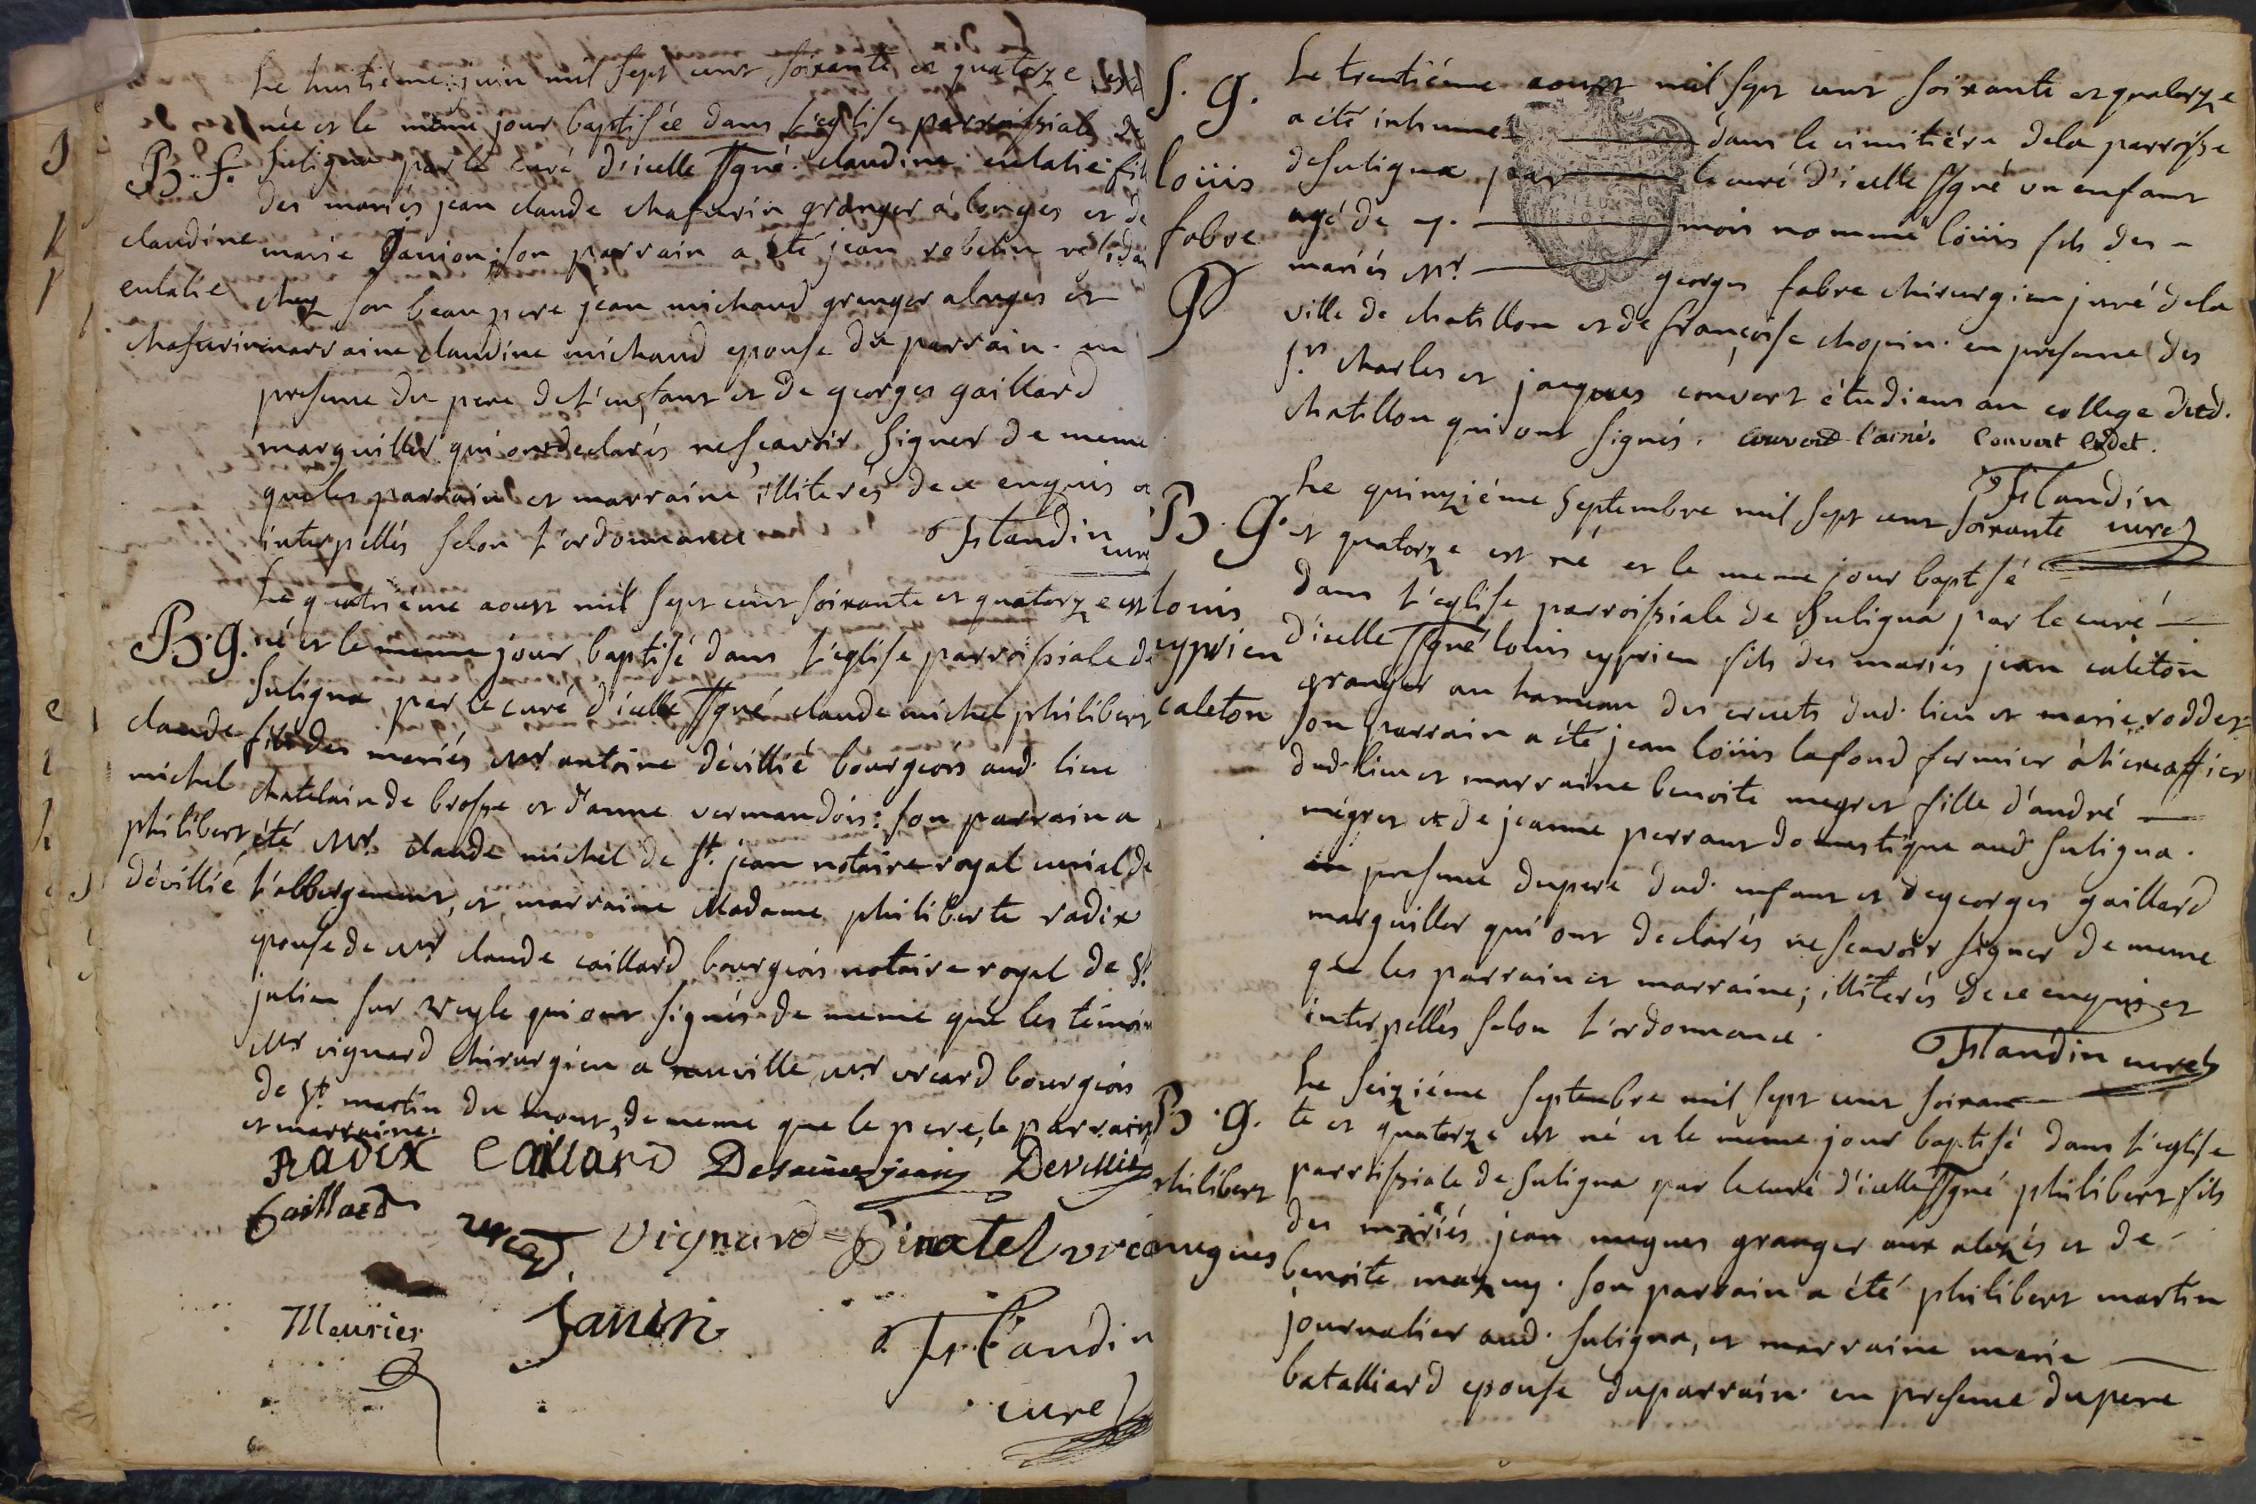 Le huitiéme juin mil sept cent soixante et quatorze est
née et le même jour baptisée dans l'eglise parroissiale de
B. f. Suligna par le curé d'icelle ssgné claudine eulalie fil
des mariés jean claude chafurin granger à longes et de
claudine marie Janion, son parrain a été jean robelin residan
eulalie chez son beau pere jean michaud granger a longes et
chafurin marraine claudine michaud epouse du parrain. en
presence du pere de l'enfant et de georges gaillard
marguiller qui ont declarés ne scavoir signer de meme
que les parrain et marraine illiterés de ce enquis et
interpellés selon l'ordonnance Flandin curé
Le quatriéme aoust mil sept cent soixante et quatorze est
B. g. né et le meme jour baptisé dans l'eglise parroissiale de
Suligna par le curé d'icelle ssgné claude michel philibert
claude fils des mariés Mr antoine dévillié bourgeois aud. lieu
michel chatelain de brosse et d'anne vermandois: son parrain a
philibert été Mr. claude michel de St. jean notaire royal curial de
dévillié l'abbergement, et marraine Madame philiberte radix
epouse de Mr claude caillard bourgeois notaire royal de St.
julien sur Veyle qui ont signés de meme que les témoin
Mr vignard chirurgien a neuville, Mr vrcard bourgeois
de St martin du mont, de meme que le pere, le parrain
et marraine.
Radix Caillard Desaint jean Devillie
Gaillard vrcard Vignard Pinatel
Meurier Janin Flandin
curé
S. g. Le trentiéme aoust mil sept cent soixante et quatorze
a été inhumé dans le cimitiére de la parroisse
loüis de Suligna par le curé d'icelle ssgné un enfant
fabre agé de 7. mois nommé loüis fils des
mariés Mr. georges fabre chirurgien juré de la
P ville de chatillon et de françoise chopin. en presence des
Srs. charles et jacques convert étudiens au college dud.
chatillon qui ont signés. Couvert l'ainé. Couvert Cadet.
Flandin
Le quinziéme Septembre mil sept cent soixante curé
B. g. et quatorze est né et le meme jour baptisé
louis dans l'eglise parroissiale de Suligna par le curé
cyprien d'icelle ssgné louis cyprien fils des mariés jean caleton
caleton granger au hameau des cruets dud. lieu et marie roddet
son parrain a été jean loüis lafond fermier à
dud. lieu et marraine benoite megret fille d'andré
mégret et de jeanne perraut domestique aud. Suligna.
en presence du pere dud. enfant et de georges gaillard
marguiller qui ont declarés ne scavoir signer de meme
que les parrain et marraine; illiterés de ce enquis et
interpellés selon l'ordonnance. Flandin curé
Le seiziéme Septembre mil sept cent soixan
B. g. te et quatorze est né et le meme jour baptisé dans l'eglise
philibert parroissiale de Suligna par le curé d'icelle ssgné philibert fils
mugnes des mariés jean mugnes granger aux alozés et de
benoite mazuy. son parrain a été philibert martin
journalier aud. Suligna, et marraine marie
batalliard epouse du parrain. en presence du pere